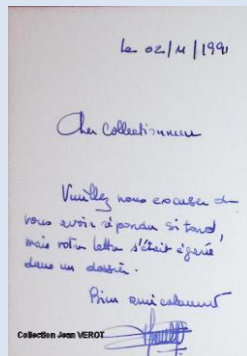 Le 02/11/1991
Cher Collectionneur
Veuillez nous excuser de
vous avoir répondu si tard,
mais votre lettre s'était égarée
dans un dossier.
Bien amicalement
Collection Jean VEROT